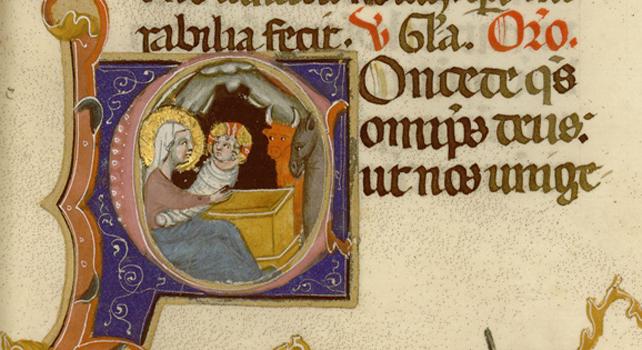 rabilia fecit. V Gla. Oro.
Oncete qs
omips deus:
ut nos unige